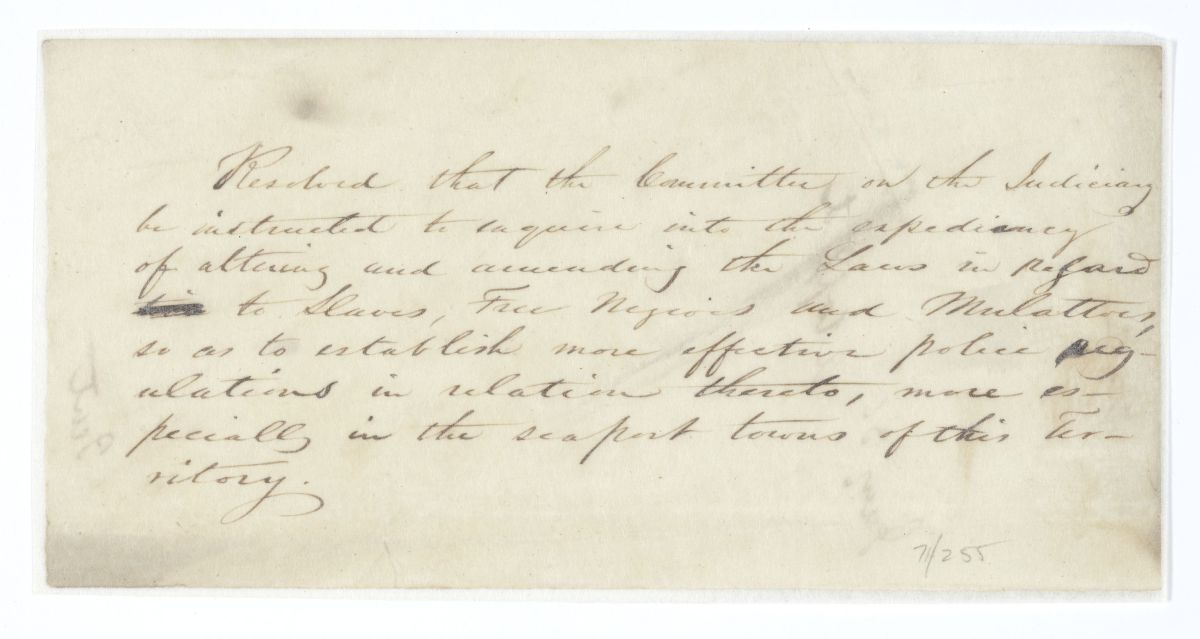 Resolved that the Committee on the Judiciary
be instructed to inquire into the expediency
of altering and amending the Laws in regard
to Slaves, Free Negroes and Mulattoes,
so as to establish more effective police reg-
ulations in relation thereto, more es-
pecially in the seaport towns of this Ter-
ritory.
71/255